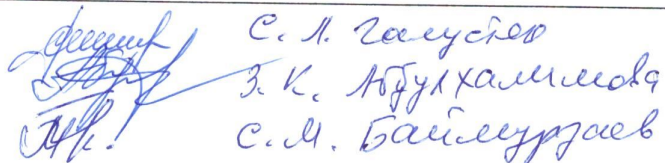 С. Л. Галустов
З. К. Абдулхалимова
С. М. Баймурзаев